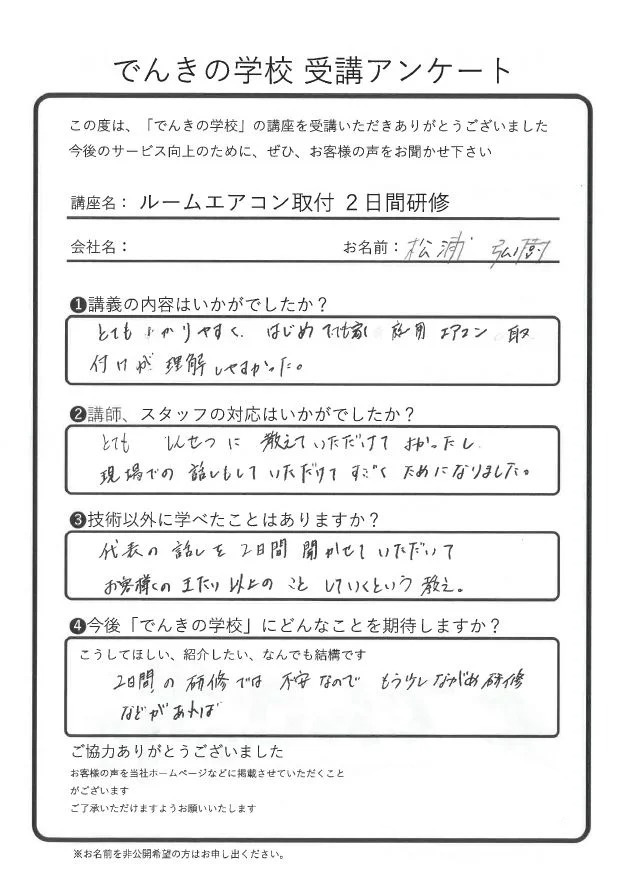 でんきの学校 受講アンケート
この度は、「でんきの学校」の講座を受講いただきありがとうございました
今後のサービス向上のために、ぜひ、お客様の声をお聞かせ下さい
講座名： ルームエアコン取付 ２日間研修
会社名： お名前： 松浦 弘樹
❶講義の内容はいかがでしたか？
とても わかりやすく、はじめてでも家庭用 エアコン 取
付けが 理解しやすかった。
❷講師、スタッフの対応はいかがでしたか？
とても しんせつに 教えていただけて よかったし
現場での 話しもして いただけて すごく ためになりました。
❸技術以外に学べたことはありますか？
代表の 話しを 2日間 聞かせて いただいて
お客様の 以上の こと していくという 教え。
❹今後「でんきの学校」にどんなことを期待しますか？
こうしてほしい、紹介したい、なんでも結構です
2日間の 研修では 不安なので もう少しながめ研修
などがあれば
ご協力ありがとうございました
お客様の声を当社ホームページなどに掲載させていただくこと
がございます
ご了承いただけますようお願いいたします
※お名前を非公開希望の方はお申し出ください。